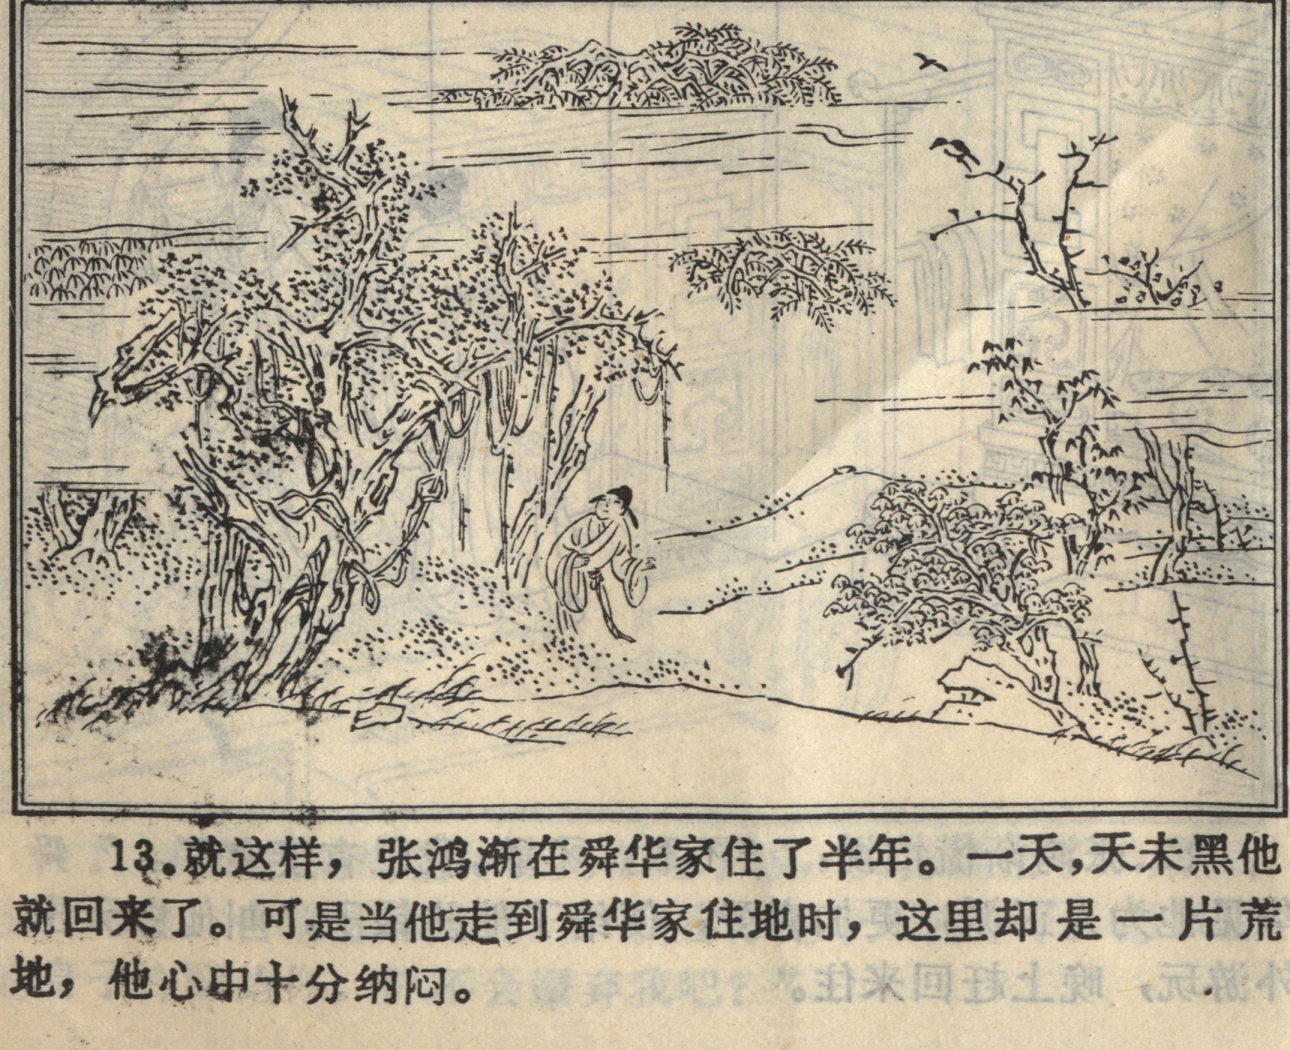 13.就这样，张鸿渐在舜华家住了半年。一天，天未黑他
就回来了。可是当他走到舜华家住地时，这里却是一片荒
地，他心中十分纳闷。